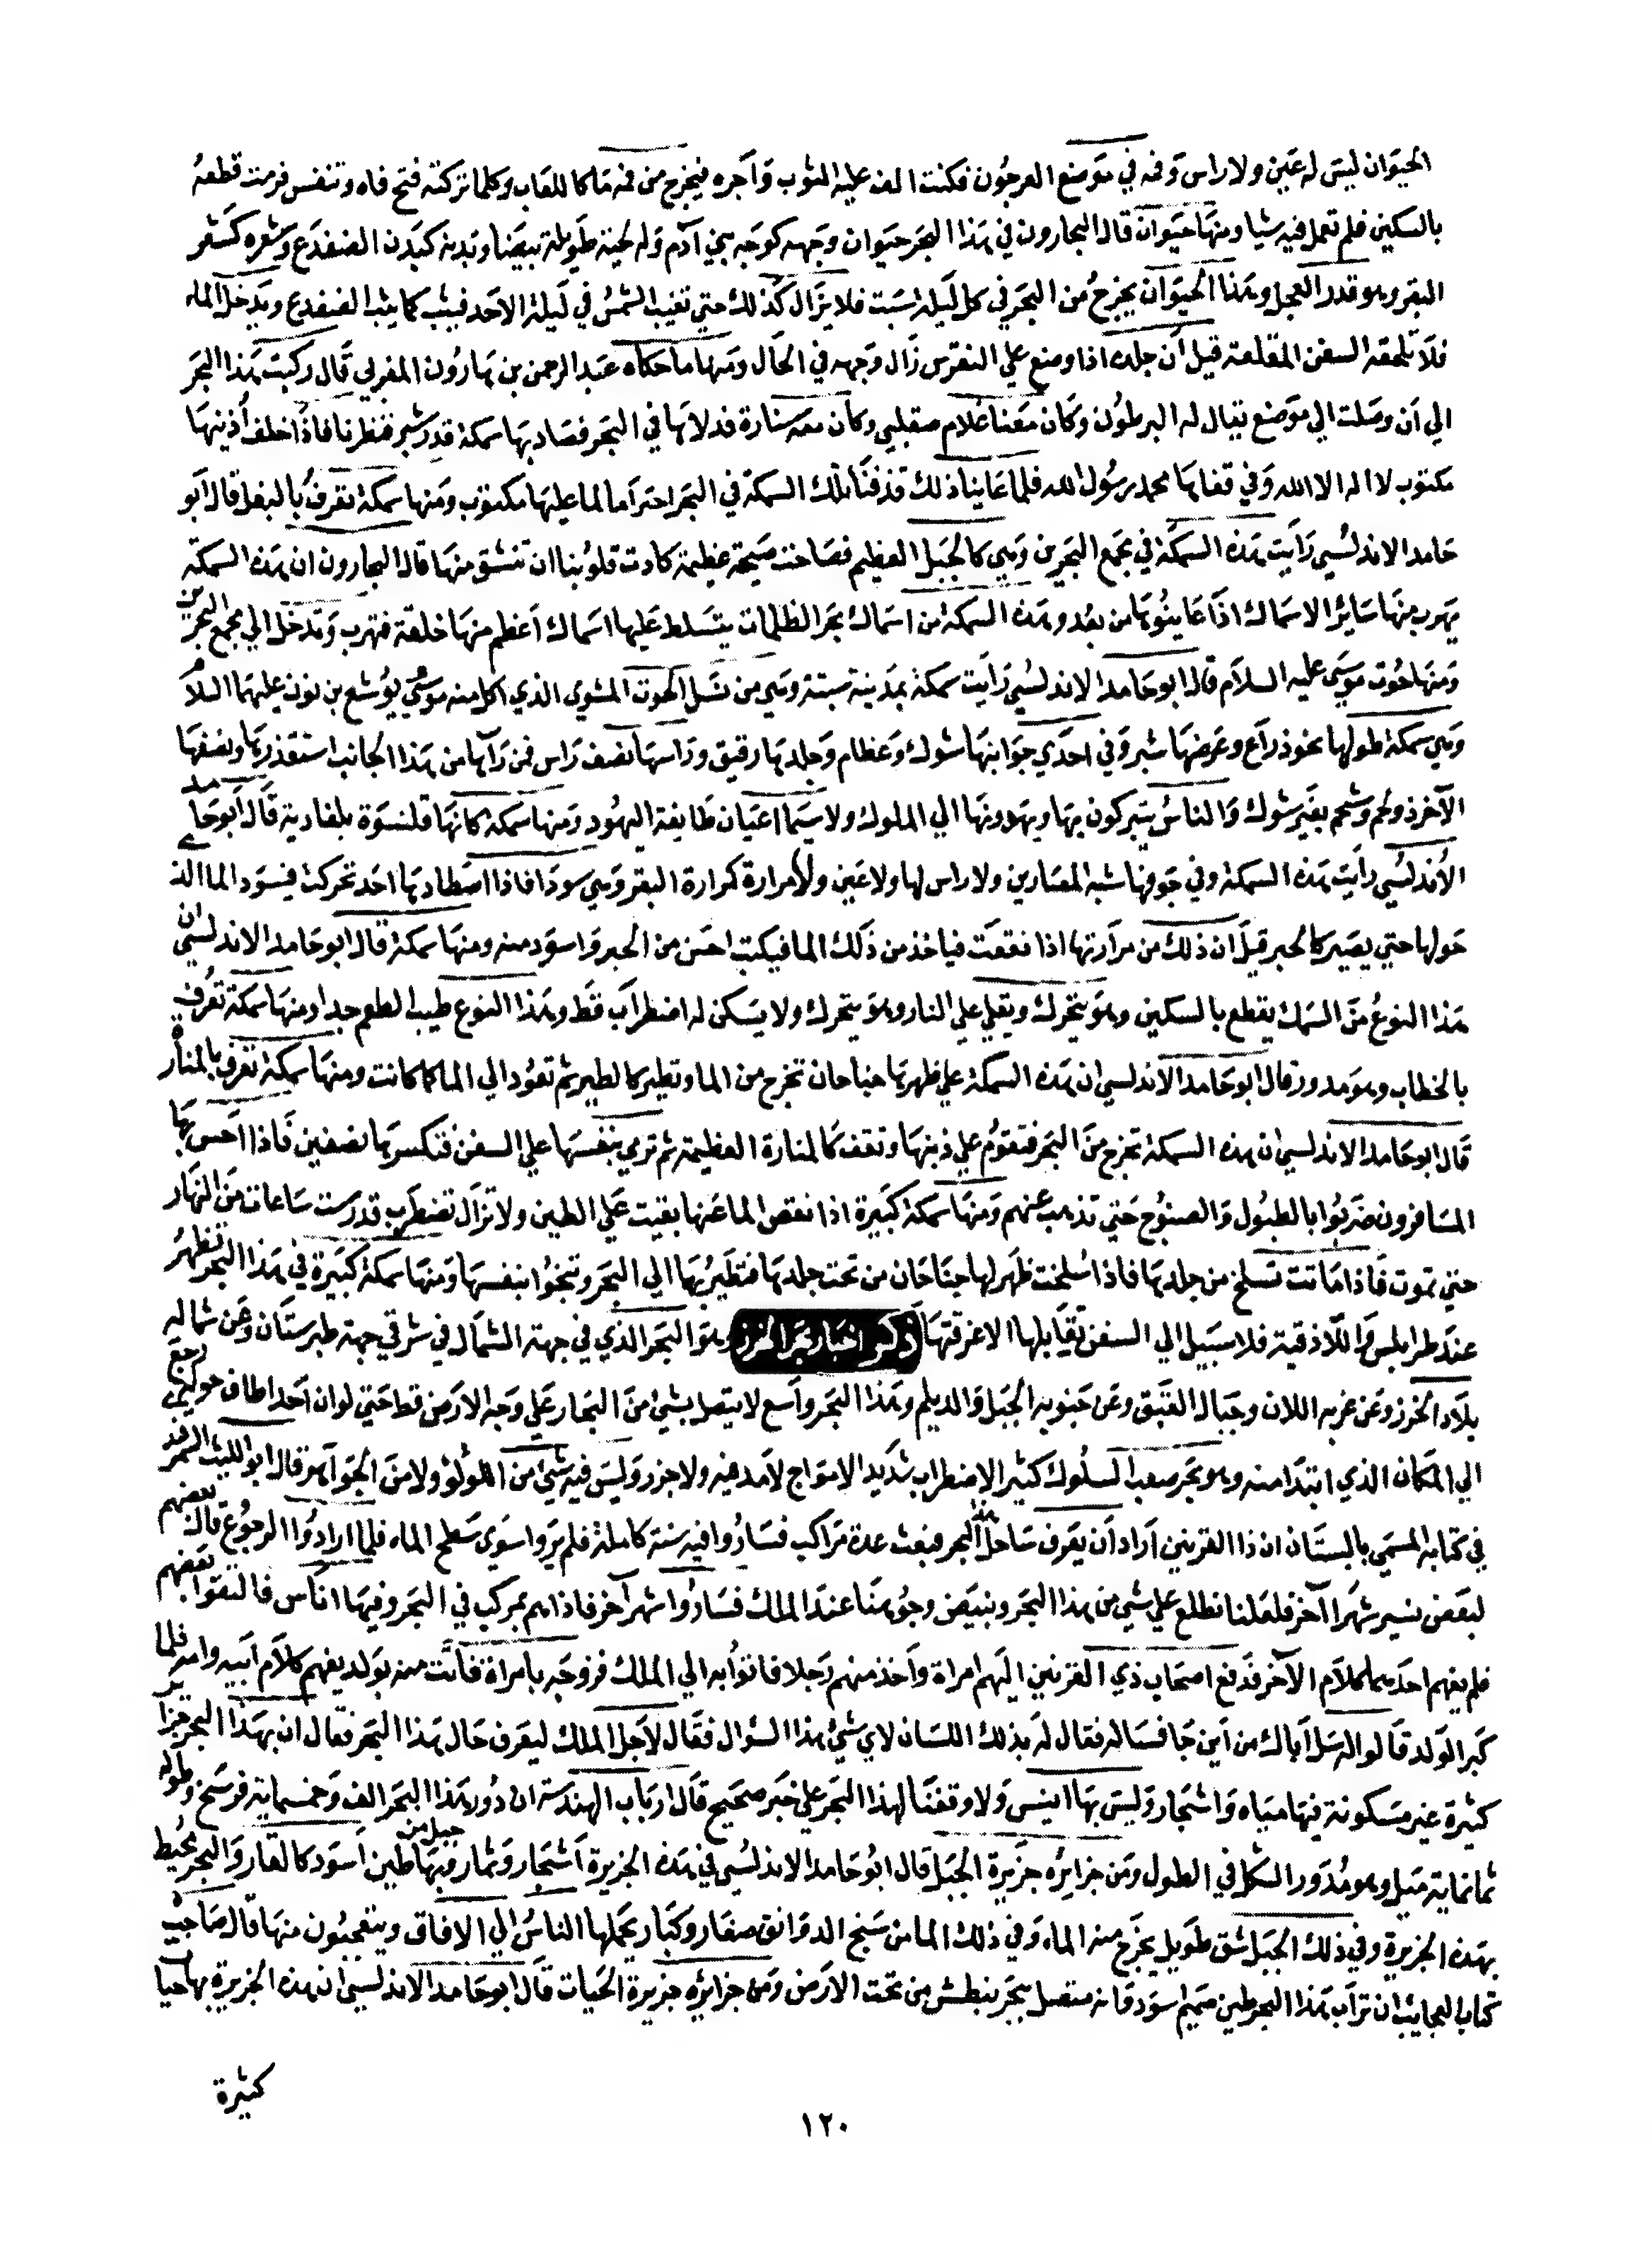 الحيوان ليس له عين ولا راس وفمه في موضع العرجون فكنت الف عليه الثوب وآجره فيخرج من فمه ماكا للعاب وكلما تركته فتح فاه وتنفس فرمت قطعه
بالسكين فلم تعمل فيه شيا ومنها حيوان قال البحارون في هذا البحر حيوان وجهه كوجه بني آدم وله لحية طويلة بيضا وبدنه كبدن الضفدع وشعره كشعر
البقر وهو قدر العجل وهذا الحيوان يخرج من البحر في كل ليلة سبت فلا يزال كذلك حتي تغيب الشمس في ليلة الاحد فيثب كما يثب الضفدع ويدخل الماء
فلا تلحقه السفن المقلعة قيل ان جلده اذا وضع علي النقرس زال وجهه في الحال ومنها ما حكاه عبد الرحمن بن هارون المغربي قال ركبت هذا البحر
الي ان وصلت الي موضع يقال له البرطون وكان معنا غلام صقلبي وكان معه سنارة فدلاها في البحر فصاد بها سمكة قدر شبر فنظرنا فاذا خلف أذنيها
مكتوب لا اله الا الله وفي قفاها محمد رسول الله فلما عاينا ذلك قذفنا تلك السمكة في البحر احتراما لما عليها مكتوب ومنها سمكة تعرف بالبغل قال ابو
حامد الاندلسي رايت هذه السمكة في مجمع البحرين وهي كالجبل العظيم فصاحت صيحة عظيمة كادت قلوبنا ان تنشق منها قال البحارون ان هذه السمكة
يهرب منها ساير الاسماك اذا عاينوها من بعد وهذه السمكة من اسماك بحر الظلمات يتسلط عليها اسماك اعظم منها خلقة فتهرب وتدخل الي مجمع البحرين
ومنها حوت موسي عليه السلام قال ابو حامد الاندلسي رايت سمكة بمدينة سبتة وهي من نسل الحوت المشوي الذي اكل منه موسي ويوشع بن نون عليهما السلام
وهي سمكة طولها نحو ذراع وعرضها شبر وفي احدي جوانبها شوك وعظام وجلدها رقيق وراسها نصف راس فمن رآها من هذا الجانب استقذرها ونصفها
الآخر ذو لحم وشحم بغير شوك والناس يتبركون بها ويهدونها الي الملوك ولا سيما اعيان طايفة اليهود ومنها سمكة كانها قلنسوة بلغادية قال ابو حامد
الأندلسي رايت هذه السمكة وفي جوفها شبه المصارين ولا راس لها ولا عين ولا مرارة كمرارة البقر وهي سودا فاذا اصطادها احد تحركت فيسود الما الذي
حولها حتي يصير كالحبر قيل ان ذلك من مرارتها اذا نقعت فياخذ من ذلك الما فيكتب احسن من الحبر واسود منه ومنها سمكة قال ابو حامد الاندلسي ان
هذا النوع من السمك يقطع بالسكين وهو يتحرك ويقلي علي النار وهو يتحرك ولا يسكن له اضطراب قط وهذا النوع طيب الطعم جدا ومنها سمكة تعرف
بالخطاب وهو مدور قال ابو حامد الاندلسي ان هذه السمكة علي ظهرها جناحان تخرج من الما وتطير كالطير ثم تعود الي الما كما كانت ومنها سمكة تعرف بالمنارة
قال ابو حامد الاندلسي ان هذه السمكة تخرج من البحر فتقوم علي ذنبها وتقف كالمنارة العظيمة ثم ترمي بنفسها علي السفن فتكسرها نصفين فاذا احس بها
المسافرون ضربوا بالطبول والصنوج حتي تذهب عنهم ومنها سمكة كبيرة اذا نقص الما عنها بقيت علي الطين ولا تزال تضطرب قدر ست ساعات من النهار
حتي تموت فاذا ماتت تسلخ من جلدها فاذا سلخت ظهر لها جناحان من تحت جلدها فتطير بها الي البحر وتنجوا بنفسها ومنها سمكة كبيرة في هذا البحر تظهر
عند طرابلس واللاذقية فلا سبيل الي السفن تقابلها الا غرقتها ذكر اخبار بحر الخزر وهو البحر الذي في جهة الشمال في شرقي جهة طبرستان وعن شماله
بلاد الخزر وعن غربه اللان وجبال القبق وعن جنوبيه الجبل والديلم وهذا البحر واسع لا يتصل بشئ من البحار علي وجه الارض قط حتي لو ان احدا طاف حوله رجع
الي المكان الذي ابتدا منه وهو بحر صعب السلوك كثير الاضطراب شديد الامواج لا مد فيه ولا جزر وليس فيه شئ من اللولؤ ولا من الجواهر قال ابو الليث السمرقندي
في كتابه المسمي بالبستان ان ذا القرنين اراد ان يعرف ساحل هذا البحر فبعث عدة مراكب فساروا فيه سنة كاملة فلم يروا سوي سطح الماء فلما ارادوا الرجوع قال بعضهم
لبعض نسير شهرا آخر فلعلنا نطلع علي شي من هذا البحر ونبيض وجوهنا عند الملك فساروا شهرا آخر فاذا هم بمركب في البحر وفيها اناس فالتقوا بعضهم
فلم يفهم احد منهما كلام الآخر فدفع اصحاب ذي القرنين اليهم امراة واخذ منهم رجلا فاتوا به الي الملك فزوجه بامراة فاتت منه بولد يفهم كلام ابيه وامه فلما
كبر الولد قالوا له سل اباك من اين جا فساله فقال له بذلك اللسان لاي شئ هذا السؤال فقال لاجل الملك ليعرف حال هذا البحر فقال ان بهذا البحر جزاير
كثيرة غير مسكونة فيها مياه واشجار وليس بها انيس ولا وقفنا لهذا البحر علي خبر صحيح قال ارباب الهندسة ان دور هذا البحر الف وخمسماية فرسخ وطوله
ثمانماية ميل وهو مدور الشكل في الطول ومن جزائره جزيرة الجبل قال ابو حامد الاندلسي في هذه الجزيرة اشجار وثمار وبها جبل من طين اسود كالقار والبحر محيط
بهذه الجزيرة وفي ذلك الجبل شق طويل يخرج منه الماء وفي ذلك الما من سنج الدوانق صغار وكبار يحملها الناس الي الافاق ويتعجبون منها قال صاحب
كتاب العجايب ان تراب هذا البحر طين صميم اسود قانه متصل ببحر بنطش من تحت الارض ومن جزائره جزيرة الحيات قال ابو حامد الاندلسي ان هذه الجزيرة بها حيات
كثيرة
١٢٠